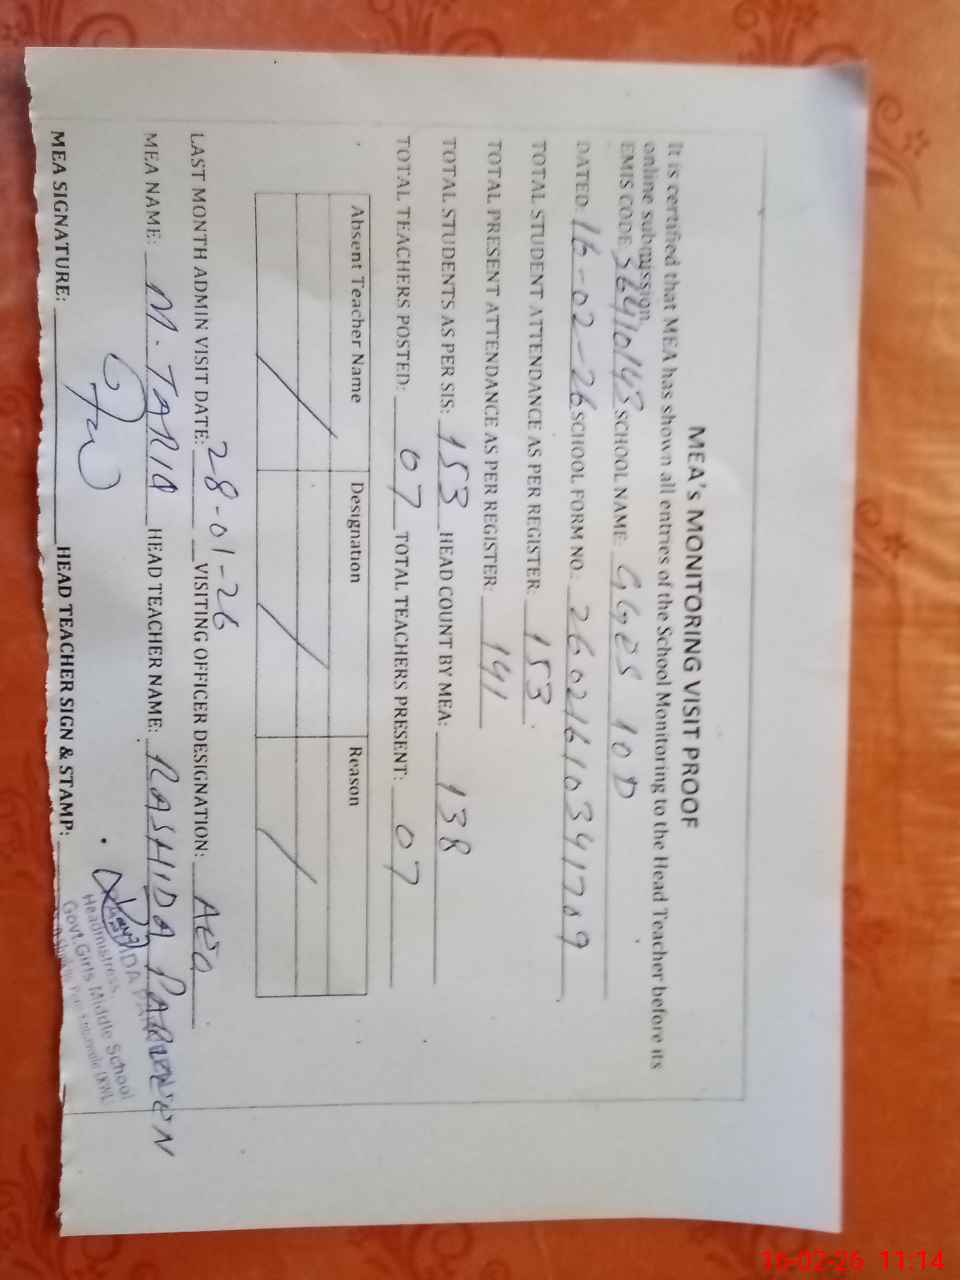 MEA's MONITORING VISIT PROOF
It is certified that MEA has shown all entries of the School Monitoring to the Head Teacher before its
online submission.
EMIS CODE: 36410143 SCHOOL NAME: GGES 10 D
DATED: 16-02-26 SCHOOL FORM NO.: 26021610341709
TOTAL STUDENT ATTENDANCE AS PER REGISTER: 153
TOTAL PRESENT ATTENDANCE AS PER REGISTER: 141
TOTAL STUDENTS AS PER SIS: 153 HEAD COUNT BY MEA: 138
TOTAL TEACHERS POSTED: 07 TOTAL TEACHERS PRESENT: 07
Absent Teacher Name Designation Reason
LAST MONTH ADMIN VISIT DATE: 28-01-26 VISITING OFFICER DESIGNATION: AEO
MEA NAME: M. TARIQ HEAD TEACHER NAME: RASHIDA PARVEEN
MEA SIGNATURE: HEAD TEACHER SIGN & STAMP:
Headmistress,
Govt. Girls Middle School
16-02-26 11:14